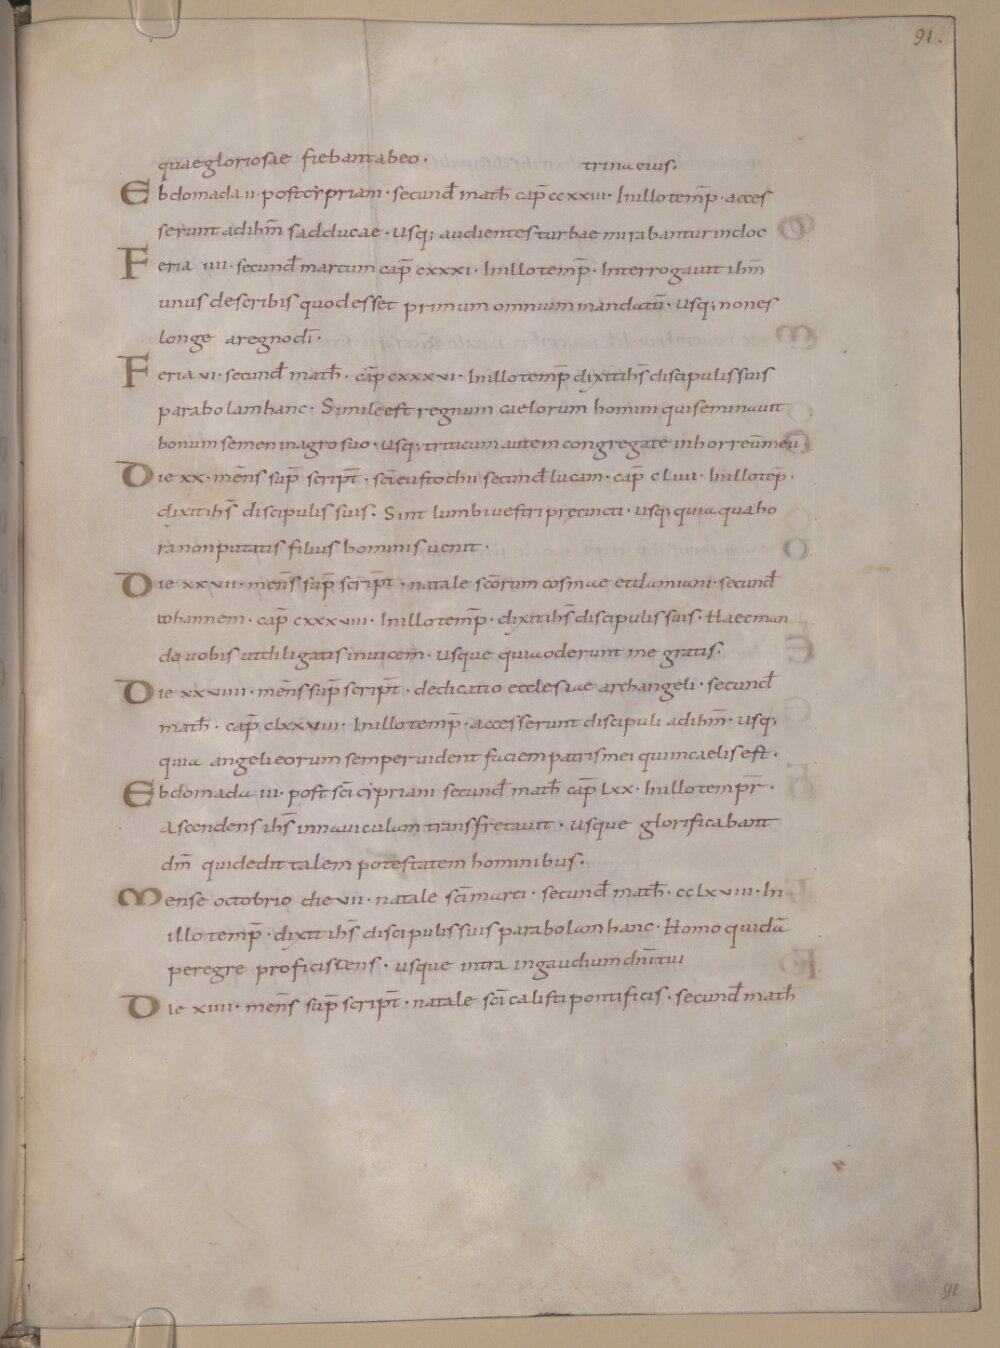 91.
quae gloriosae fiebant abeo· trina eius.
Ebdomada ii· post cypriani· secund̄ math̄ cap̄ ccxxiii· In illo temp̄· acces
serunt ad ihm̄ sadducae· usq; audientes turbae mirabantur indoc
Feria iiii· secund̄ marcum cap̄ cxxxi· In illo temp̄· Interrogauit ihm̄
unus de scribis quod esset primum omnium mandatū· usq; non es
longe a regno dī·
Feria vi· secund̄ math̄· cap̄ cxxxvi· In illo temp̄ dixit ihs̄ discipulis suis
parabolam hanc· Simile est regnum caelorum homini qui seminauit
bonum semen in agro suo· usq; triticum autem congregate in horreū meū·
Die xx· mēns sup̄ script̄· sc̄i eustochii secund̄ lucam· cap̄ cLviii· In illo tēp̄·
dixit ihs̄ discipulis suis· Sint lumbi uestri precincti· usq; quia qua ho
ra non putatis filius hominis uenit·
Die xxvii· mēns sup̄ script̄· natale scōrum cosmae et damiani· secund̄
iohannem· cap̄ cxxxviii· In illo temp̄· dixit ihs̄ discipulis suis· Haec man
do uobis ut diligatis inuicem· usque quia oderunt me gratis·
Die xxviiii· mēns sup̄ script̄· dedicatio ecclesiae archangeli· secund̄
math̄· cap̄ cLxxviii· In illo temp̄· accesserunt discipuli ad ihm̄· usq;
quia angeli eorum semper uident faciem patris mei qui in caelis est·
Ebdomada iii· post sc̄i cypriani secund̄ math̄ cap̄ Lxx· In illo tempr̄·
Ascendens ihs̄ in nauiculam transfretauit· usque glorificabant
dm̄ qui dedit talem potestatem hominibus·
Mense octobrio die vii· natale sc̄i marci· secund̄ math̄· ccLxviii· In
illo temp̄· dixit ihs̄ discipulis suis parabolam hanc· Homo quidā
peregre proficiscens· usque intra in gaudium dnī tui
Die xiiii· mēns sup̄ script̄· natale sc̄i calisti pontificis· secund̄ math̄
91